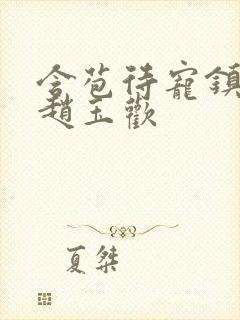 含苞待寵鎮
趙玉歡
夏桀